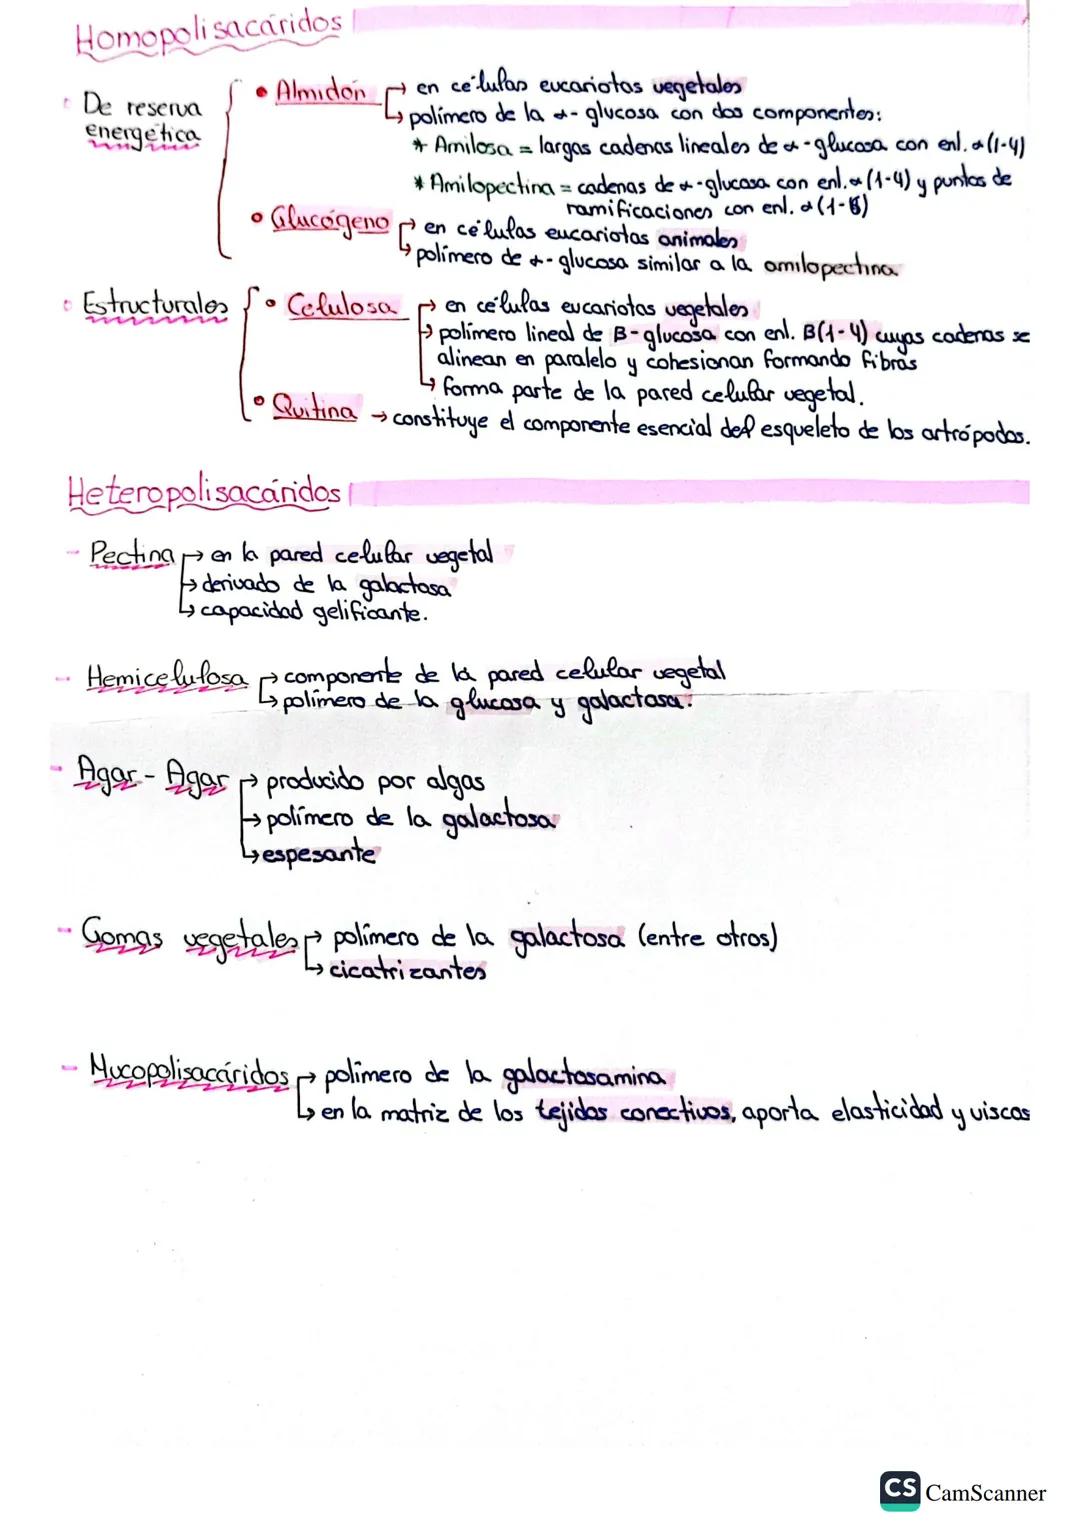 Homopolisacáridos
De reserva energética
• Almidón → en células eucariotas vegetales
→ polímero de la α-glucosa con dos componentes:
* Amilosa = largas cadenas lineales de α-glucosa con enl. α(1-4)
* Amilopectina = cadenas de α-glucosa con enl. α(1-4) y puntos de
ramificaciones con enl. α(1-6)
• Glucógeno → en células eucariotas animales
→ polímero de α-glucosa similar a la amilopectina
Estructurales
• Celulosa → en células eucariotas vegetales
→ polímero lineal de B-glucosa con enl. B(1-4) cuyas cadenas se
alinean en paralelo y cohesionan formando fibras
→ forma parte de la pared celular vegetal.
• Quitina → constituye el componente esencial del esqueleto de los artrópodos.
Heteropolisacáridos
- Pectina → en la pared celular vegetal
→ derivado de la galactosa
→ capacidad gelificante.
- Hemicelulosa → componente de la pared celular vegetal
→ polímero de la glucosa y galactosa.
- Agar-Agar → producido por algas
→ polímero de la galactosa
→ espesante
- Gomas vegetales → polímero de la galactosa (entre otros)
→ cicatrizantes
- Mucopolisacáridos → polímero de la galactosamina
→ en la matriz de los tejidos conectivos, aporta elasticidad y viscos
CS CamScanner